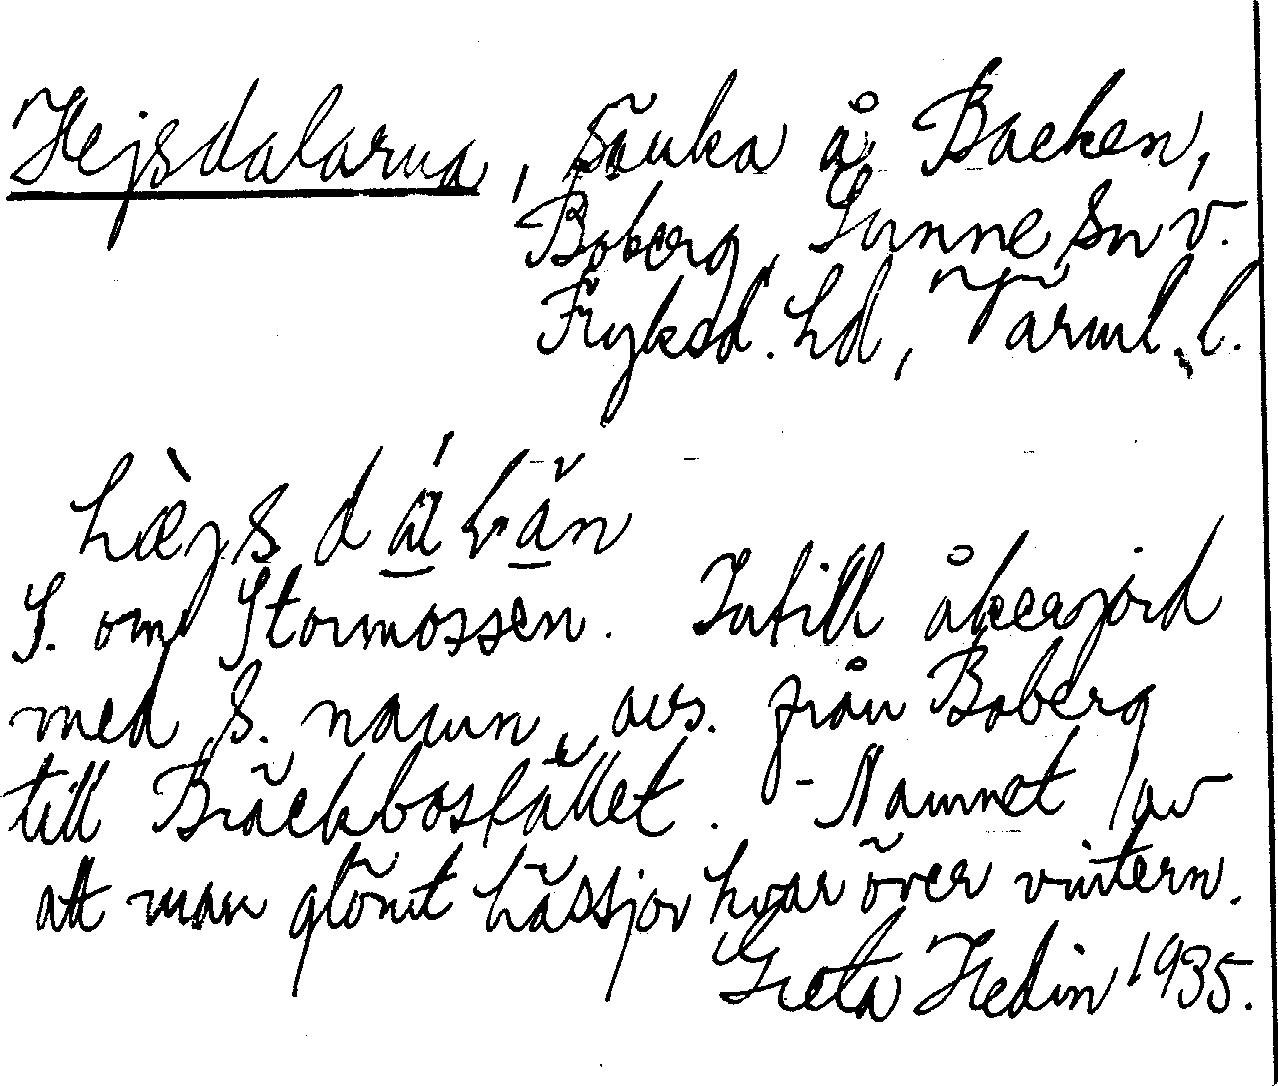 Hejsdalarna, sänka å Backen,
Boberg, Sunne sn v.
Fryksd. hd, Värml. l.
hæ̀jsdálăn
S. om Stormossen. Intill åkerjord
med s. namn, avs. från Boberg
till Bräckbosfället. - Namnet av
att man glömt hässjor kvar över vintern.
Greta Hedin 1935.